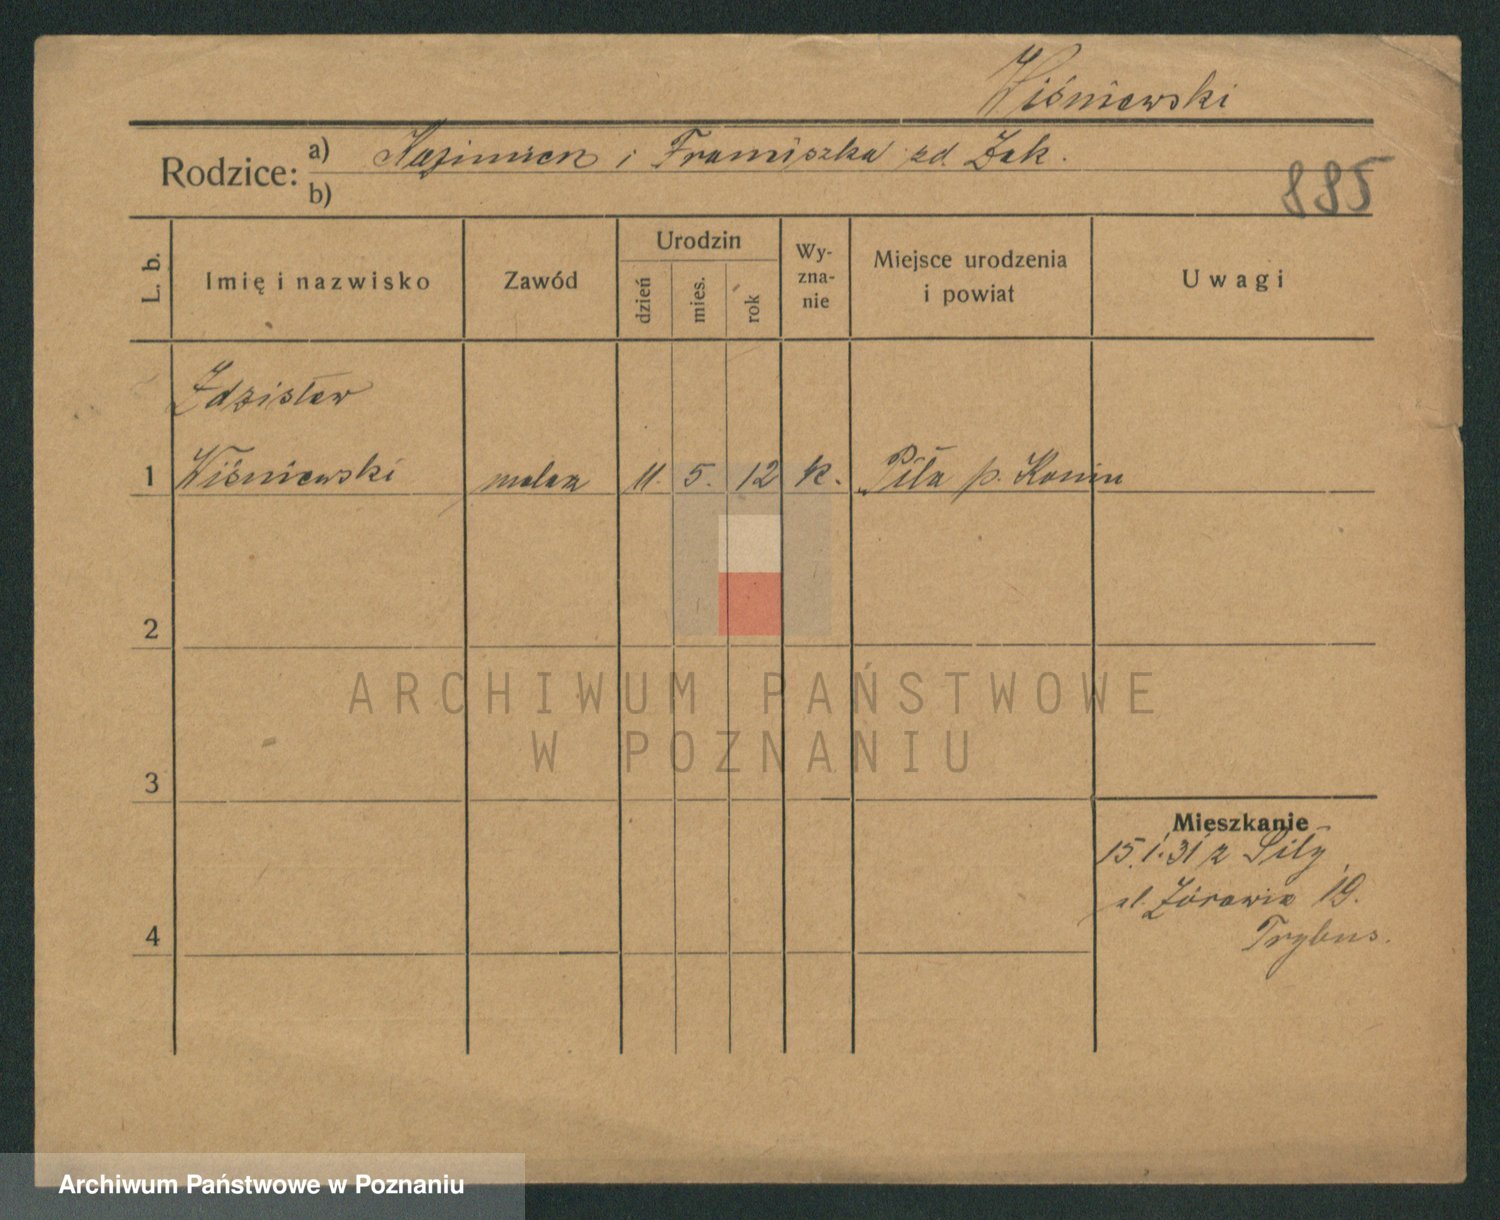 Wiśniewski
Rodzice: a) Kazimierz i Franciszka zd. Żak.
b)
885
L. b.
Imię i nazwisko
Zawód
Urodzin
dzień
mies.
rok
Wy-
zna-
nie
Miejsce urodzenia
i powiat
Uwagi
Zdzisław
1 Wiśniewski malarz 11. 5. 12 k. Piła p. Konin
2
ARCHIWUM PAŃSTWOWE
W POZNANIU
3
Mieszkanie
15.1.31 z Piły
ul. Żórawia 19.
Trybus.
4
Archiwum Państwowe w Poznaniu